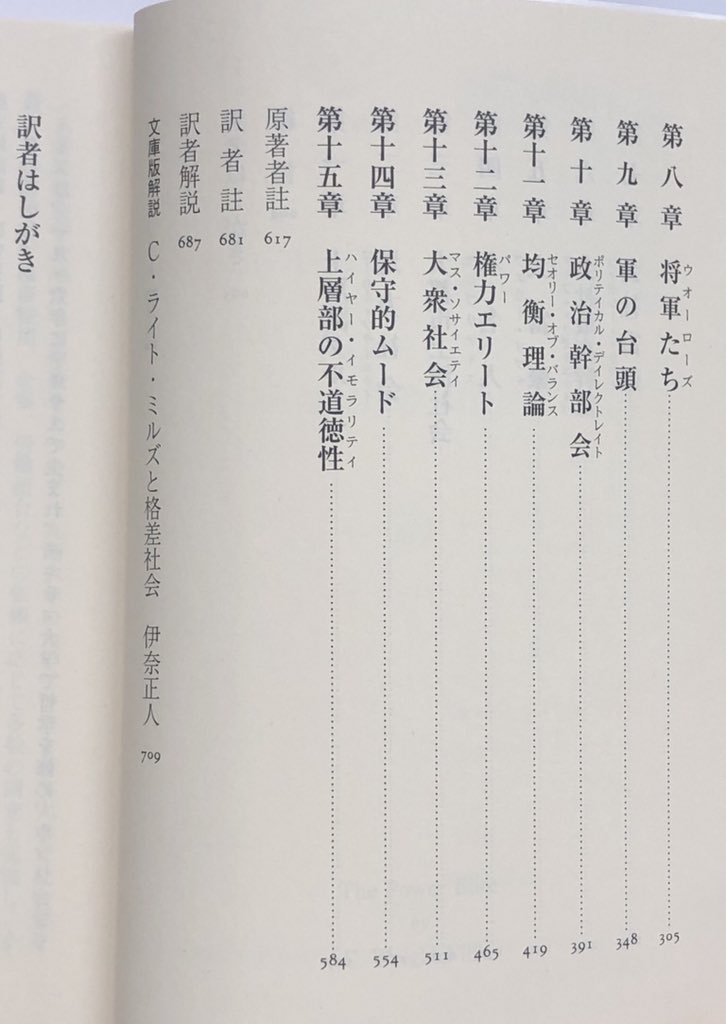 第八章 将軍たち 305
ウォーローズ
第九章 軍の台頭 348
第十章 政治幹部会 391
ポリティカル・ディレクトレイト
第十一章 均衡理論 419
セオリー・オブ・バランス
第十二章 権力エリート 465
パワー
第十三章 大衆社会 511
マス・ソサイエティ
第十四章 保守的ムード 554
第十五章 上層部の不道徳性 584
ハイヤー・イモラリティ
原著者註 617
訳者註 681
訳者解説 687
文庫版解説 C・ライト・ミルズと格差社会 伊奈正人 709
訳者はしがき